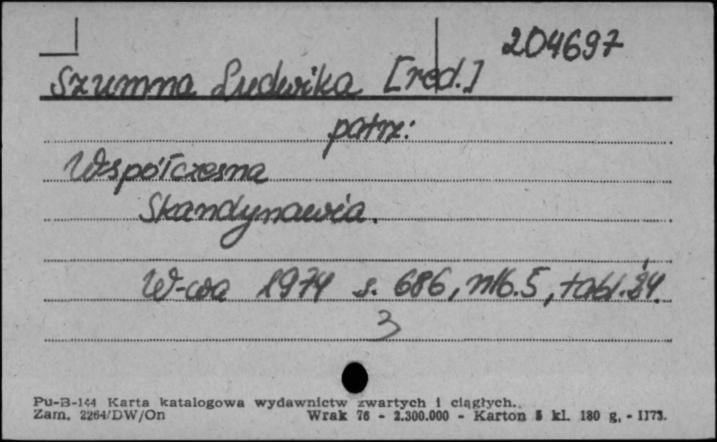 204697
Szumna Ludwika [red.]
patrz:
Współczesna
Skandynawia.
W-wa 1974 s. 686, nlb. 5, tabl. 34.
3
Pu-B-144 Karta katalogowa wydawnictw zwartych i ciągłych.
Zam. 2264/DW/On Wrak 76 - 2.300.000 - Karton 5 kl. 180 g. - II73.